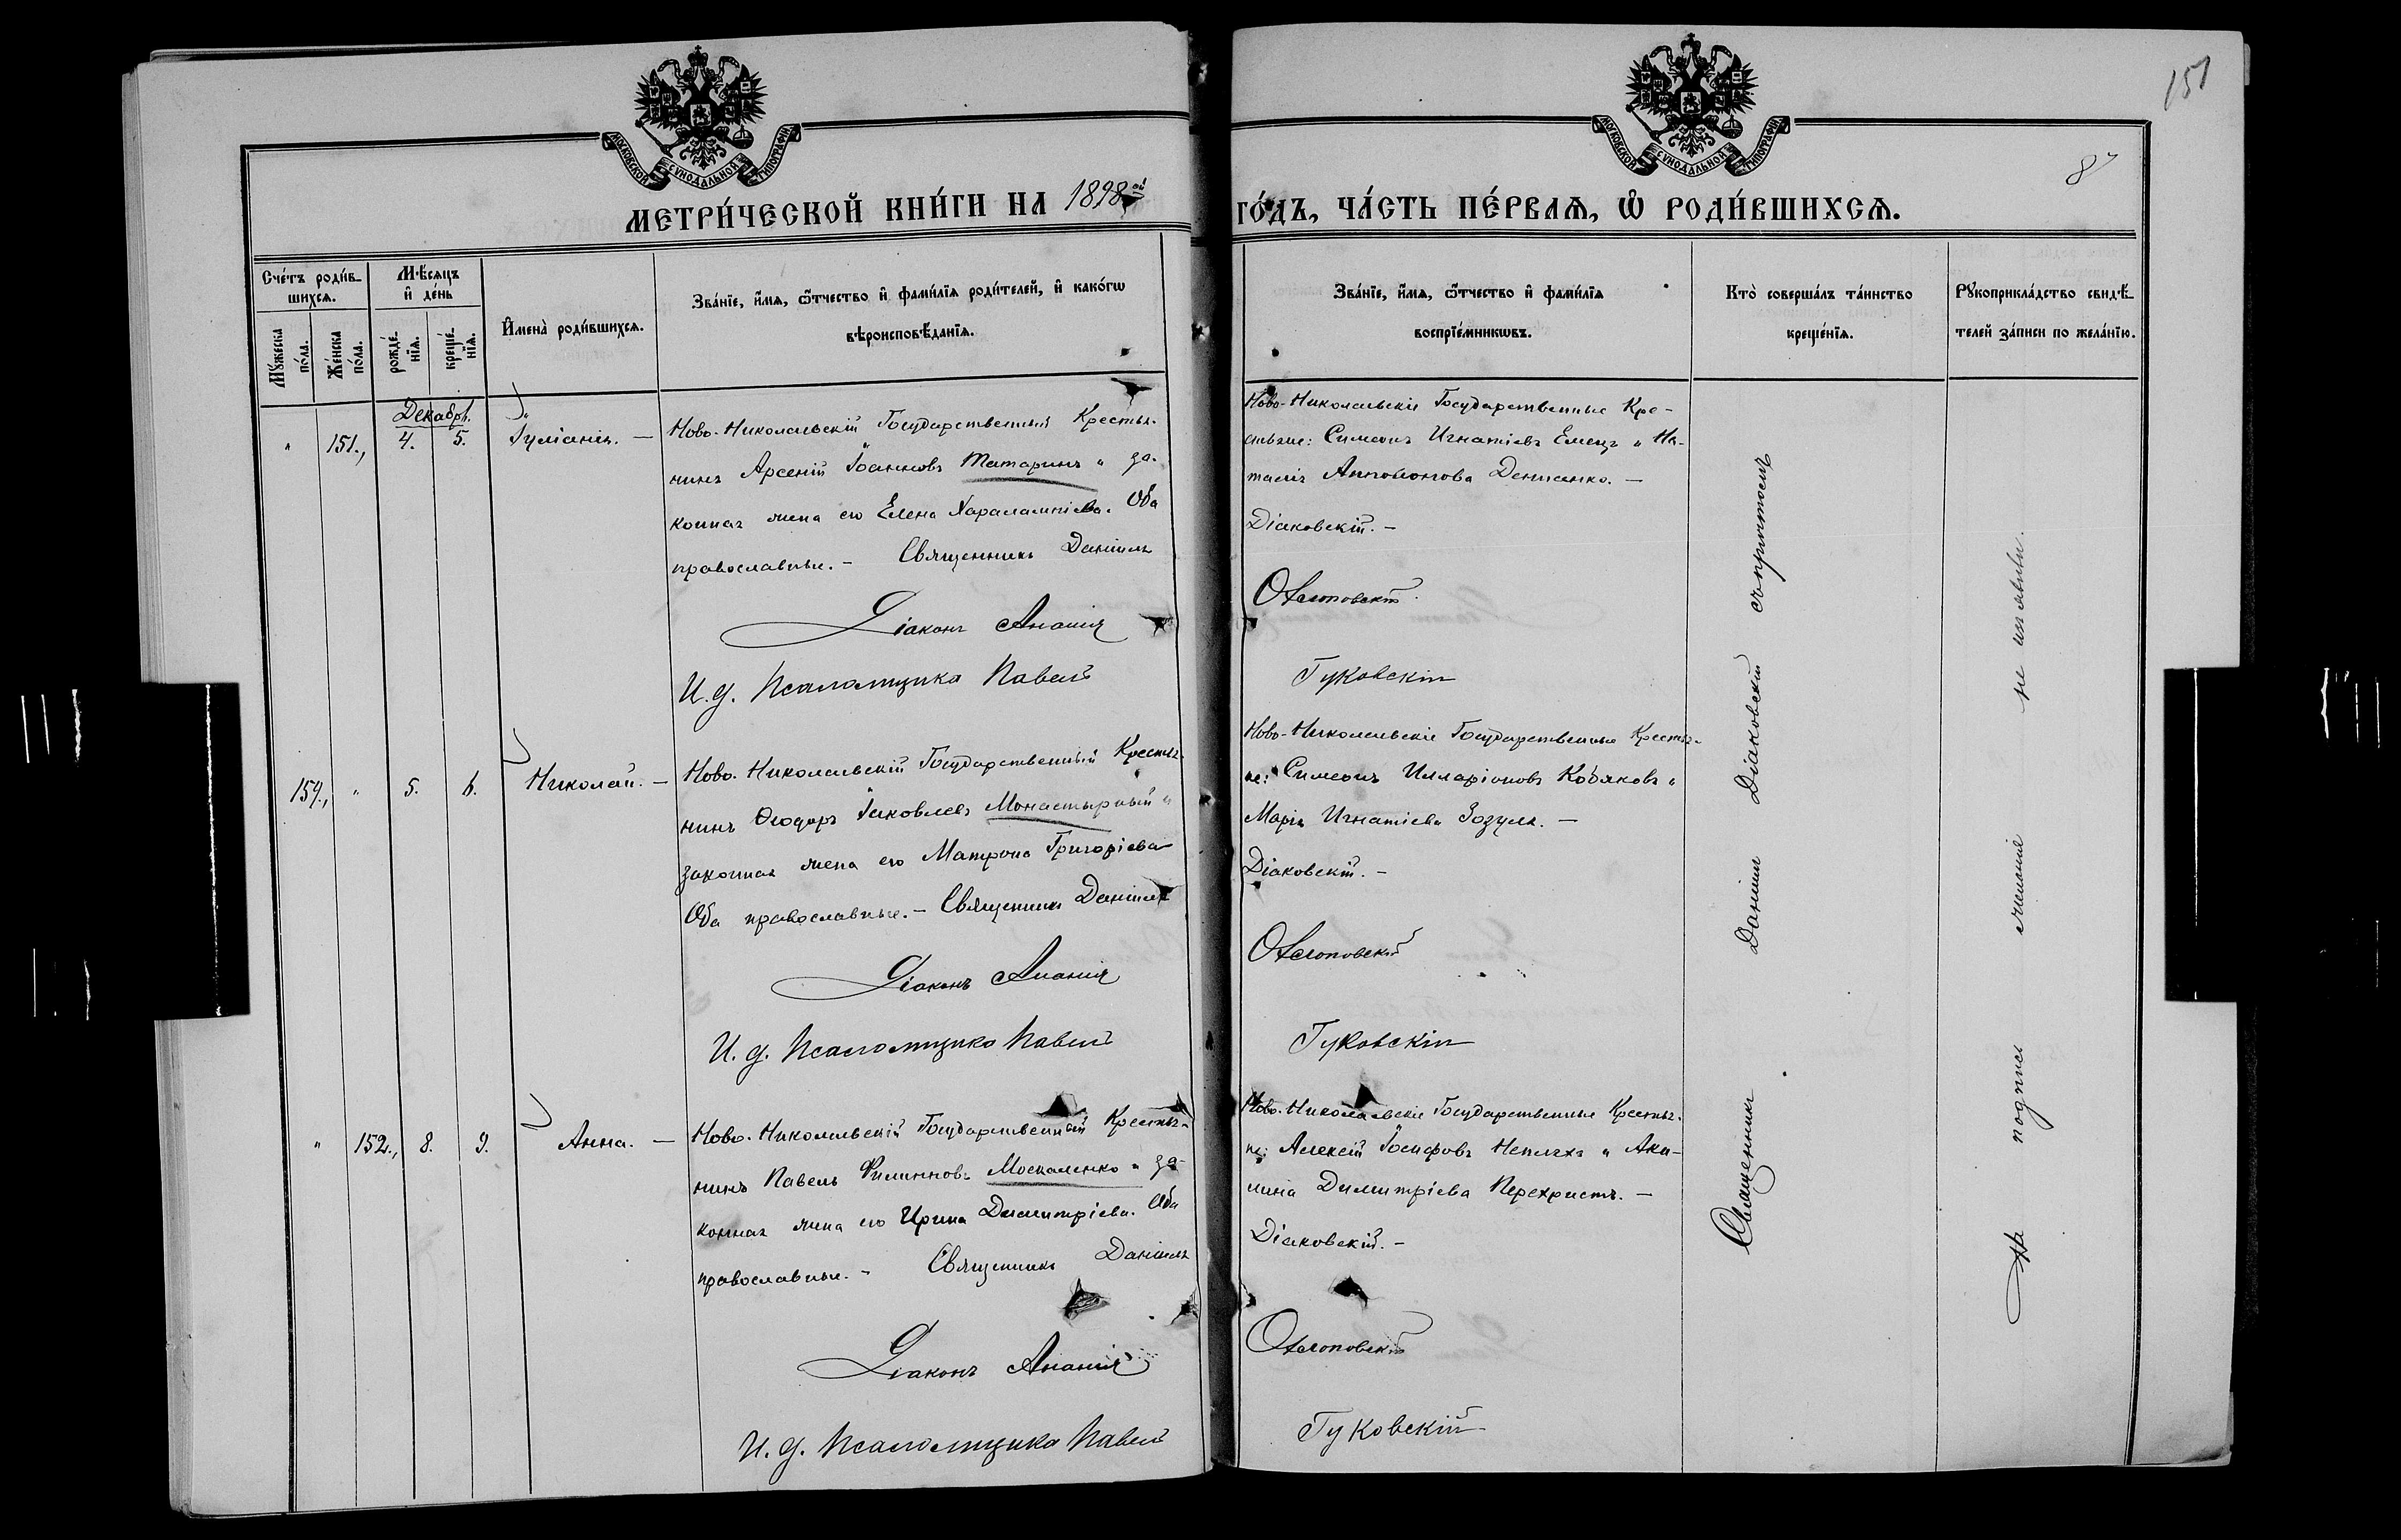 151
87
МОСКОВСКОЙ СѴНОДАЛЬНОЙ ТИПОГРАФІИ
МОСКОВСКОЙ СѴНОДАЛЬНОЙ ТИПОГРАФІИ
МЕТРИ́ЧЕСКОЙ КНИ́ГИ НА 1898ой
ГО́ДЪ, ЧА́СТЬ ПЕ́РВАѦ, Ѡ҆ РОДИ́ВШИХСѦ.
Сче́тъ роди́в-
шихсѧ.
Мꙋ́жеска по́ла.
Же́нска по́ла.
Мѣ́сѧцъ
и҆ де́нь
рожде́-нїѧ.
креще́-нїѧ.
И҆мена̀ роди́вшихсѧ.
Зва́нїе, и҆́мѧ, ѻ҆́тчество и҆ фами́лїѧ роди́телей, и҆ како́гѡ
вѣроисповѣ́данїѧ.
Зва́нїе, и҆́мѧ, ѻ҆́тчество и҆ фами́лїѧ
воспрїе́мникѡвъ.
Кто̀ соверша́лъ та́инство
креще́нїѧ.
Рꙋкоприкла́дство свидѣ́-
телей за́писи по жела́нїю.
Декабрь.
" 151., 4. 5. Іуліанія. —
Ново-Николаевскій Государственный Крестья-
нинъ Арсеній Іоанновъ Татаринъ и за-
конная жена его Елена Харалампіева. Оба
православные. – Священникъ Даніилъ
Діаконъ Ананія
И. д. Псаломщика Павелъ
Ново-Николаевскіе Государственные Кре-
стьяне: Симеонъ Игнатіевъ Емецъ и На-
талія Антоніонова Денисенко. —
Діаковскій. –
Гуковскій
159., " 5. 6. Николай. —
Ново-Николаевскій Государственный Крестья-
нинъ Ѳеодоръ Іаковлевъ Монастырный и
законная жена его Матрона Григоріева
Оба православные. – Священникъ Даніилъ
Діаконъ Ананія
И. д. Псаломщика Павелъ
Ново-Николаевскіе Государственные Крестья-
не: Симеонъ Илларіоновъ Кобяковъ и
Марія Игнатіева Зозуля. —
Діаковскій. –
Гуковскій
" 152., 8. 9. Анна. —
Ново-Николаевскій Государственный Крестья-
нинъ Павелъ Филипповъ Москаленко и за-
конная жена его Ирина Димитріева. Оба
православные. – Священникъ Даніилъ
Діаконъ Ананія
И. д. Псаломщика Павелъ
Ново-Николаевскіе Государственные Крестья-
не: Алексій Іосифовъ Непляха и Аки-
лина Димитріева Перехристъ. —
Діаковскій. –
Гуковскій
Священникъ Даніилъ Діаковскій съ причтомъ
На подпись желанія не изъявили.